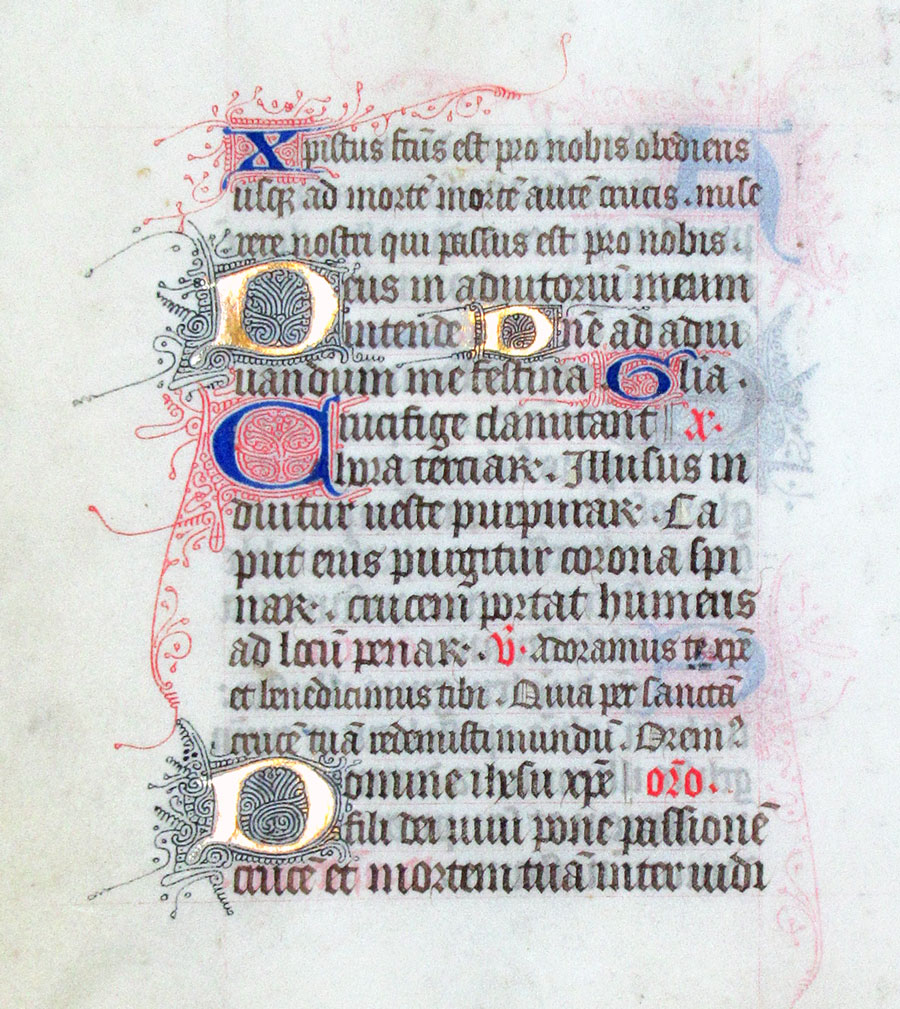 Xpistus fctūs est pro nobis obediens
usqꝫ ad mortē mortē autē crucis . mise
rere nostri qui passus est pro nobis .
Deus in adiutoriū meum
intende Dnē ad adiu
uandum me festina Glia .
Crucifige clamitant x.
hora terciaꝝ . Illusus in
duitur ueste purpuraꝝ . Ca
put eius pungitur corona spi
naꝝ . crucem portat humeris
ad locū penaꝝ . v̄. Adoramus te xpē
et benedicimus tibi . Quia per sanctā
crucē tuā redemisti mundū . Oremꝰ
Domine ihysu xpē or̄o .
fili dei uiui pone passionē
crucē et mortem tuā inter iudi